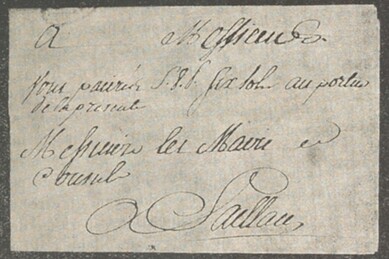 A Messieurs
Vous paurés S.V.P. six sols au porteur
de la presente
Messieurs les Maire et
Consuls
A Saillans